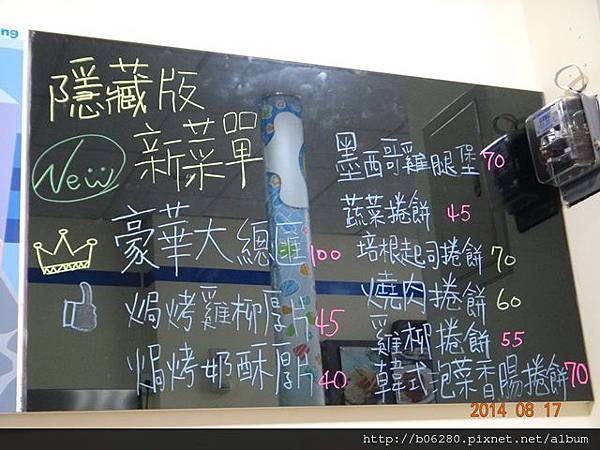 隱藏版
New
新菜單
豪華大總匯 100
焗烤雞柳厚片 45
焗烤奶酥厚片 40
墨西哥雞腿堡 70
蔬菜捲餅 45
培根起司捲餅 70
燒肉捲餅 60
雞柳捲餅 55
韓式泡菜香腸捲餅 70
2014 08 17
http://b06280.pixnet.net/album